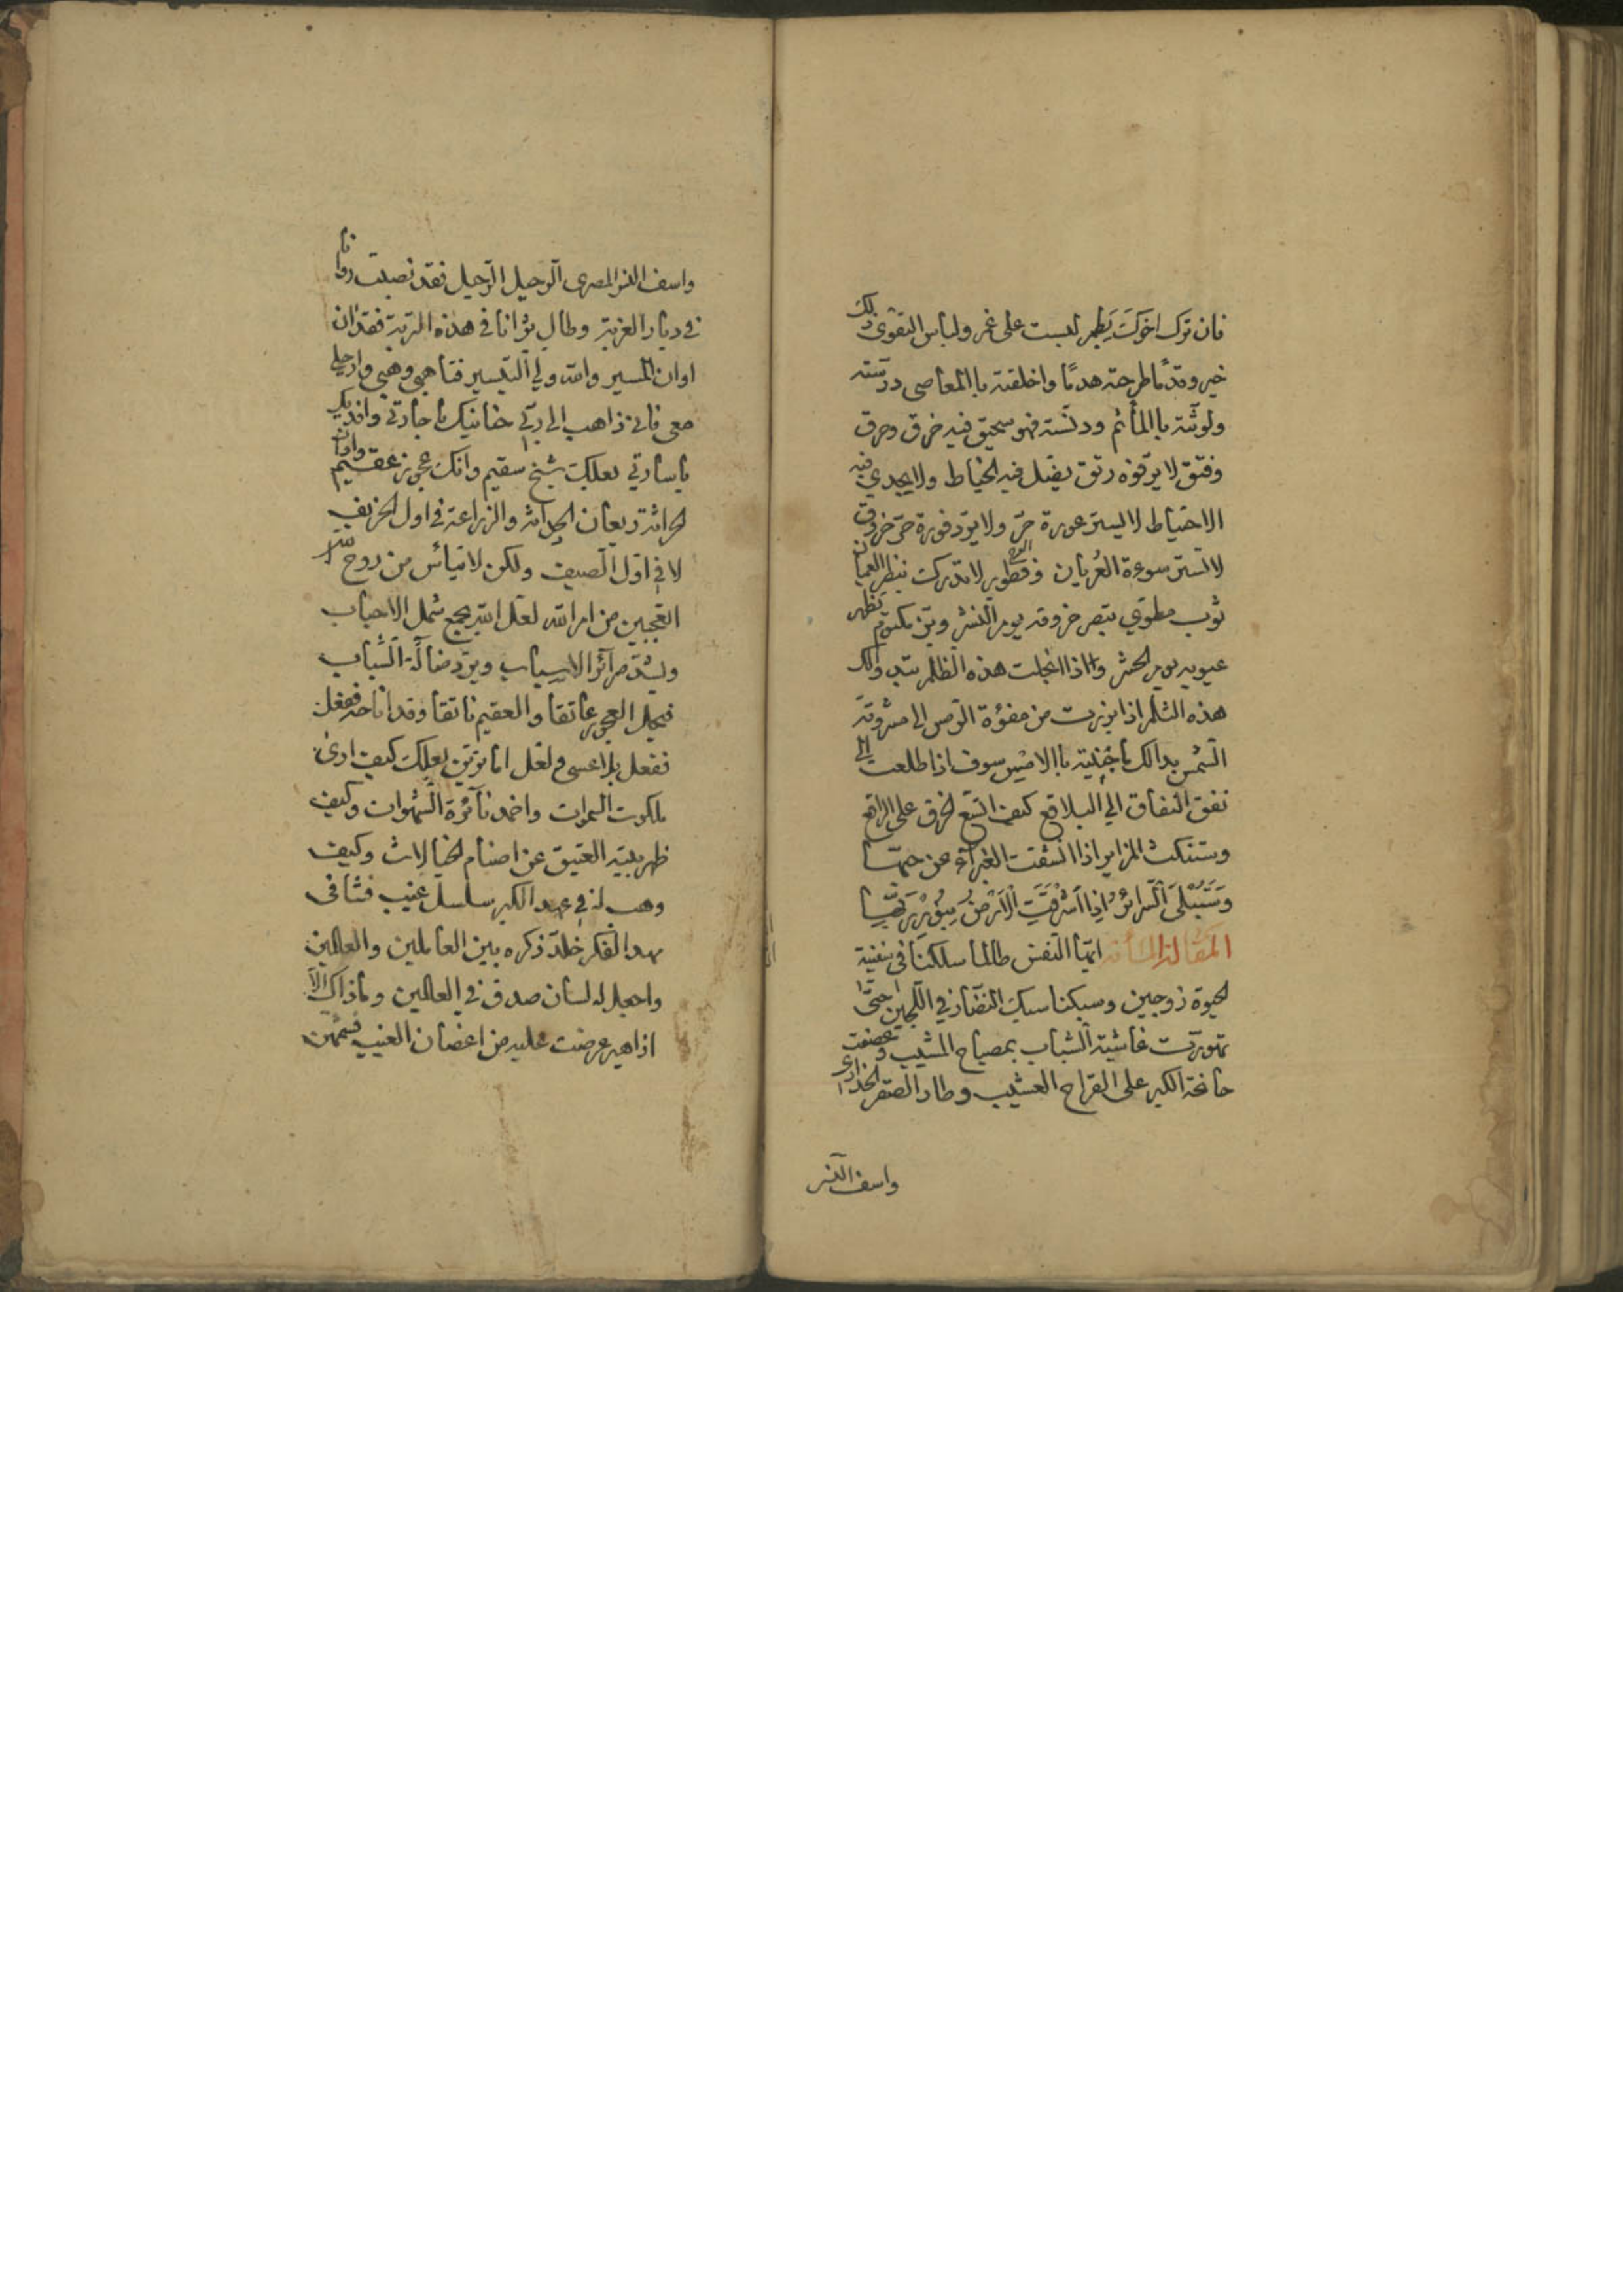 فان ترك اخوك يطهر لبست على غمر ولباس التقوى ذلك
خير وقدما طرحته هدما واخلقته باالمعاصى ودنسته
ولوثته باالمأثم ودنسته فهو سحيق فيه خرق وحرق
وفتق لا يرقوه رتق يضل فيه الخياط ولا يجدي فيه
الاحتياط لا يستر عورة حر ولا يرد فورة حر خروق
لا تستر سوءة العريان لا تدركت بنظر العميان
ثوب مطوي تبصر خروقه يوم النشر وتظهر
عيوبه يوم الحشر واذا انجلت هذه الظلم
هذه الثلم اذا برزت من الى مشرقة
الشمس بدا لك باالامس سوف اذا طلعت الى
نفق النفاق الى البلاقع كيف اتسع الخرق على الراقع
وستنكث المزاير اذا انشقت الغبرآء عن
وستبلى السرائر اذا اشرقت الارض بنور ربها
المقالة ايها النفس طالما سلكنا في سفينة
الحيوة زوجين وسبكنا سبك النضار في اللجين حتى
تهورت غاشية الشباب بمصباح المشيب وعصفت
الكبر على القراح العشيب وطار الصقر الخدارى
واسف النسر
واسف النسر المصرى الرحيل الرحيل فقد نصبت روانا
في ديار الغربة وطال ثوانا في هذه التربة فقد ان
اوان المسير والله ولي التيسير فتاهبى وهبي وارحلي
معي فاني ذاهب الى ربي حنانيك يا جارتي وافديك
يا سارتي بعلك شيخ سقيم وانك عجوز عقيم واوان
الحراثة ريعان الحداثة والزراعة في اول الخريف
لا في اول الصيف ولكن لا تيأس من روح الله
اتعجبين من امر الله لعل الله يجمع شمل الاحباب
ويشد مرآئر الاسباب ويرد ضالة الشباب
فيجعل العجوز عاتقا والعقيم ناتقا وقد اناخه ففعل
نفعل بلا عسى ولعل اما ترين بعلك كيف ارى
ملكوت السموات واخمد نآئرة الشهوات وكيف
طهر بيته العتيق عن اصنام الخيالات وكيف
وهب له في عهد الكبر سلسل غيب فتنافى
مهد الفكر خلد ذكره بين العاملين والعالمين
واجعل له لسان صدق في العالمين وما ذاك الا
ازاهير عرضت عليه من اغصان الغيب فشمهن